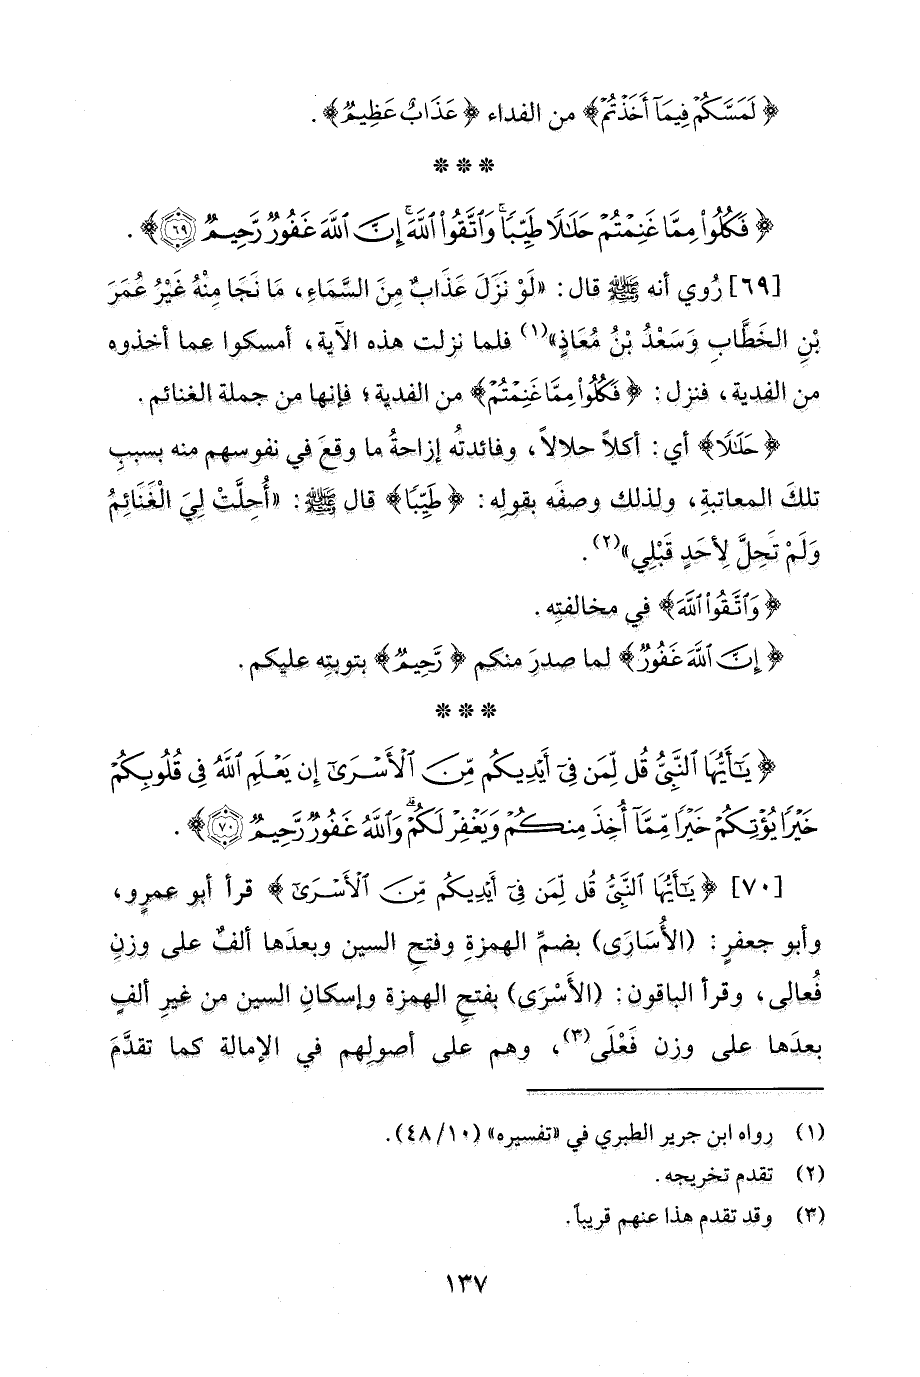 ﴿ لَمَسَّكُمْ فِيمَآ أَخَذْتُمْ﴾ من الفداء ﴿ عَذَابٌ عَظِيمٌ﴾ .
* * *
﴿ فَكُلُوا۟ مِمَّا غَنِمْتُمْ حَلَٰلًا طَيِّبًا ۚ وَٱتَّقُوا۟ ٱللَّهَ ۚ إِنَّ ٱللَّهَ غَفُورٌ رَّحِيمٌ ٦٩﴾ .
[٦٩] رُوي أنه ﷺ قال: «لَوْ نَزَلَ عَذَابٌ مِنَ السَّمَاءِ، مَا نَجَا مِنْهُ غَيْرُ عُمَرَ
بْنِ الخَطَّابِ وَسَعْدُ بْنُ مُعَاذٍ»(١) فلما نزلت هذه الآية، أمسكوا عما أخذوه
من الفدية، فنزل: ﴿ فَكُلُوا۟ مِمَّا غَنِمْتُمْ﴾ من الفدية؛ فإنها من جملة الغنائم.
﴿ حَلَٰلًا﴾ أي: أكلاً حلالاً، وفائدتُه إزاحةُ ما وقعَ في نفوسهم منه بسببِ
تلكَ المعاتبةِ، ولذلك وصفَه بقولِه: ﴿ طَيِّبًا﴾ قال ﷺ: «أُحِلَّتْ لِيَ الْغَنَائِمُ
وَلَمْ تَحِلَّ لِأَحَدٍ قَبْلِي»(٢).
﴿ وَٱتَّقُوا۟ ٱللَّهَ﴾ في مخالفتِه.
﴿ إِنَّ ٱللَّهَ غَفُورٌ﴾ لما صدرَ منكم ﴿ رَّحِيمٌ﴾ بتوبتِه عليكم.
* * *
﴿ يَٰٓأَيُّهَا ٱلنَّبِىُّ قُل لِّمَن فِىٓ أَيْدِيكُم مِّنَ ٱلْأَسْرَىٰٓ إِن يَعْلَمِ ٱللَّهُ فِى قُلُوبِكُمْ
خَيْرًا يُؤْتِكُمْ خَيْرًا مِّمَّآ أُخِذَ مِنكُمْ وَيَغْفِرْ لَكُمْ ۗ وَٱللَّهُ غَفُورٌ رَّحِيمٌ ٧٠﴾ .
[٧٠] ﴿ يَٰٓأَيُّهَا ٱلنَّبِىُّ قُل لِّمَن فِىٓ أَيْدِيكُم مِّنَ ٱلْأَسْرَىٰٓ ﴾ قرأ أبو عمرٍو،
وأبو جعفرٍ: (الأُسَارَى) بضمِّ الهمزةِ وفتحِ السين وبعدَها ألفٌ على وزنِ
فُعالى، وقرأ الباقون: (الأَسْرَى) بفتحِ الهمزة وإسكانِ السين من غيرِ ألفٍ
بعدَها على وزن فَعْلَى(٣)، وهم على أصولِهم في الإمالة كما تقدَّمَ
(١) رواه ابن جرير الطبري في «تفسيره» (١٠/ ٤٨).
(٢) تقدم تخريجه.
(٣) وقد تقدم هذا عنهم قريباً.
١٣٧